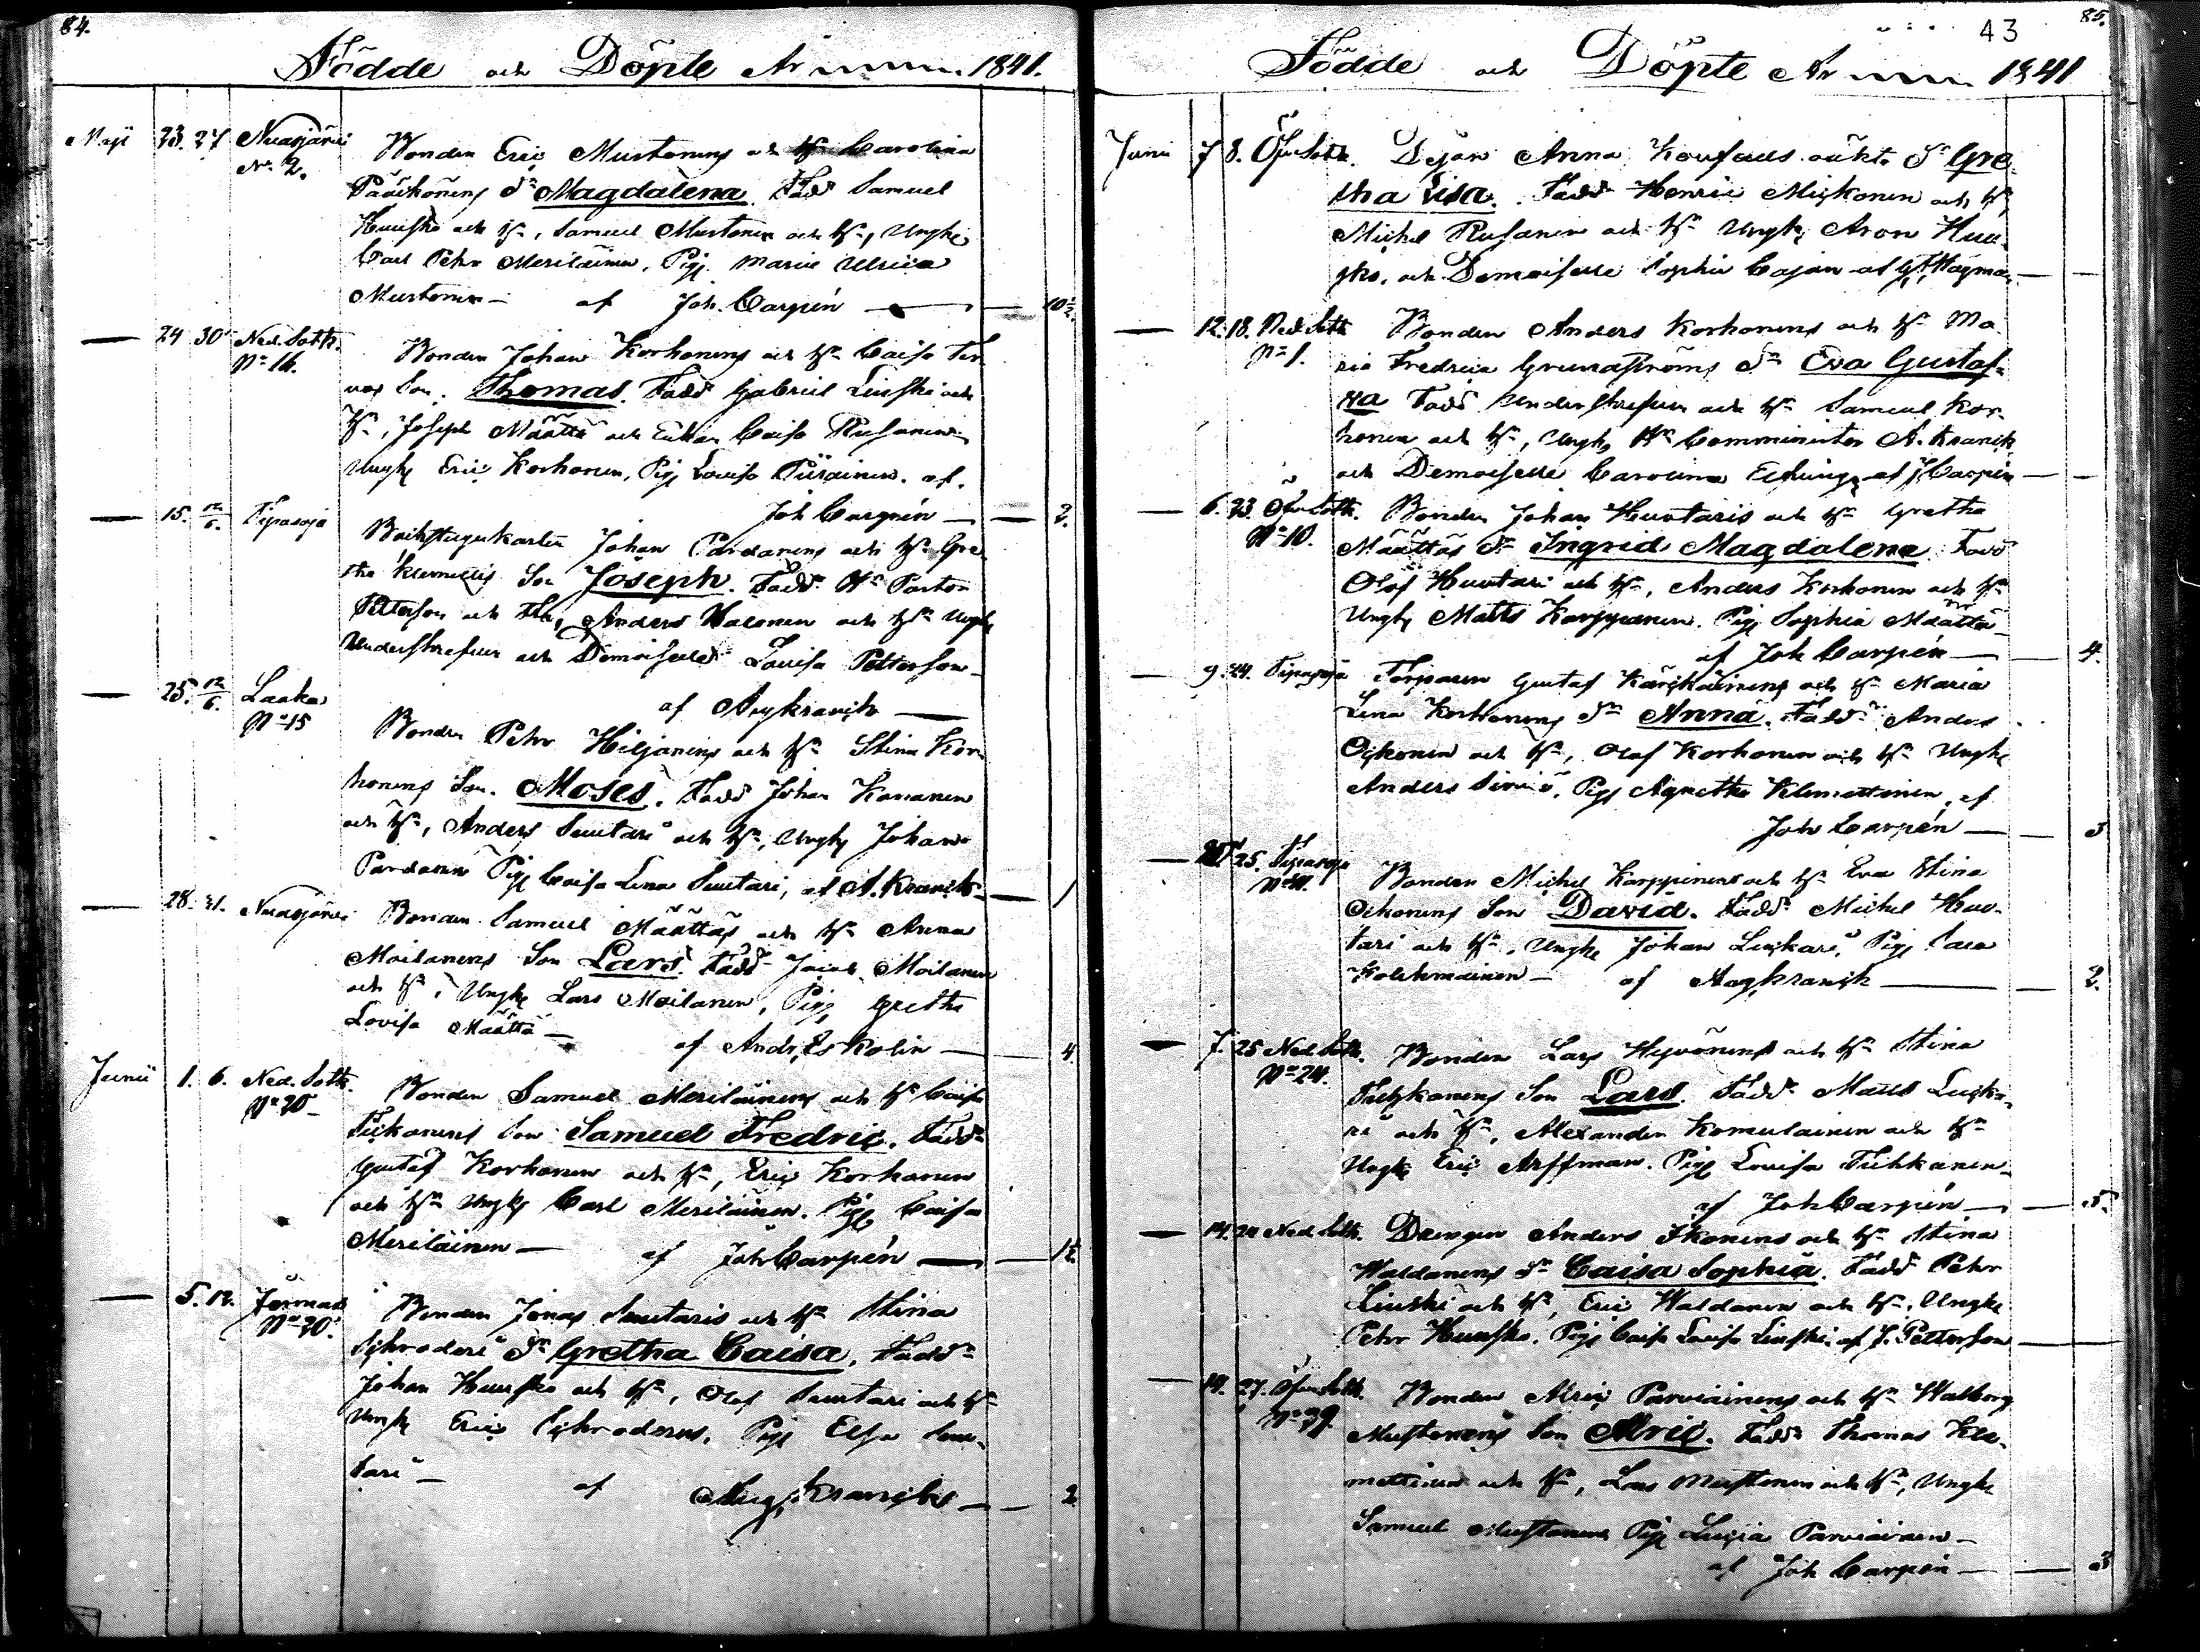 84.
Födde och Döpte År 1841.
Maji 23. 27 Nuasjärvi Bonden Eric Mustonens och H Carolina
No 2. Pääskönens Dr Magdalena. Fadd Samuel
Huusko och H, Samuel Mustonen och H, Ungk
Carl Pehr Meriläinen, Pig. Maria Ulrica
Mustonen — af Joh. Carpén — 10½
— 24 30 Ned. Sotk. Bonden Johan Korhonens och H Caisa Ter
No 16. vos Son. Thomas. Fadd Gabriel Liuski och
H, Joseph Määttä och Enkan Caisa Rusanen
Ungk Eric Korhonen, Pig Lovisa Piirainen. af.
Joh Carpén — 2.
— 15. 12/6. Tipasoja Backstugukarlen Johan Pardanens och H Gre
tha Klemettis Son Joseph. Fadd Hr Pastor
Petterson och Fru, Anders Halonen och H Ungk
Understrefven och Demoiselle Lovisa Petterson
af Aug Kranck —
— 25. 12/6. Laaka Bonden Pehr Hiljanens och H Stina Kor
No 15 honens Son. Moses. Fadd Johan Kananen
och H, Anders Suutari och H, Ungk Johan
Pardanen Pig Caisa Lena Suutari, af A. Kranck — 1
— 28. 31. Nuasjärvi Bonden Samuel Määttäs och H Anna
Moilanens Son Lars. Fadd Jacob Moilanen
och H, Ungk Lars Moilanen, Pig Gretha
Lovisa Määttä — af And. Eskolin — 4.
Junii 1. 6. Ned. Sotk. Bonden Samuel Meriläinens och H Caisa
No 20 — Tickanens Son Samuel Fredric. Fadd
Gustaf Korhonen och H, Eric Korhonen
och H Ungk Carl Meriläinen. Pig Caisa
Meriläinen — af Joh Carpén — 1½
— 5. 12. Jormas Bonden Jonas Suutaris och H Stina
No 20. Schroderi Dr Gretha Caisa. Fadd
Johan Huusko och H, Olof Suutari och H
Ungk Eric Schroderus. Pig Elsa Suu-
tari — af Aug. Kranck — 2
43 85.
Födde och Döpte År 1841
Junii 7 8. Öfver Sotk. Dejan Anna oäkta Dr Gre
tha Lisa. Fadd Henric Mickonen och H,
Michel Rusanen och H Ungk Aron Huu-
sko, och Demoiselle Sophia Cajan af G. Hagman —
— 12. 18. Ned Sotk Bonden Anders Korhonens och H Ma
No 1. ria Fredrica Grundströms Dr Eva Gustaf-
va Fadd Understrefven och H Samuel Kor-
honen och H, Ungk Hr Comminister A. Kranck
och Demoiselle Carolina af J Carpén —
— 6. 23. Öfver Sotk. Bonden Johan Huotaris och H Gretha
No 10. Määttäs Dr Ingrid Magdalena. Fadd
Olof Huotari och H, Anders Korhonen och H
Ungk Matts Karppanen. Pig Sophia Määttä
af Joh Carpén — 4.
— 9. 24. Tipasoja Torparen Gustaf Kärckäinens och H Maria
Lena Korhonens Dr Anna. Fadd Anders
Ockonen och H, Olof Korhonen och H Ungk
Anders Pig Agnetha Klemettinen, af
Joh Carpén — 3
— 25. Tipasoja Bonden Michel Karppinens och H Eva Stina
Ockonens Son David. Fadd Michel Huo-
tari och H, Ungk Johan Luckari, Pig
Kolehmainen — af Aug Kranck — 2.
— 7. 25 Ned Sotk. Bonden Lars Hyvönens och H Stina
No 24. Son Lars. Fadd Matts Lucka-
ri och H, Alexander Komulainen och H
Ungk Eric Arffman. Pig Lovisa Tuhkanen
af Joh Carpén — 5.
— 14. 20 Ned Sotk. Drengen Anders Ikonens och H Stina
Waldanens Dr Caisa Sophia. Fadd Pehr
Liuski och H, Eric Waldanen och H, Ungk
Pehr Huusko. Pig Caisa Lovisa Liuski. af J. Petterson —
— 19. 27. Öfver Sotk. Bonden Alric Parviainens och H Walborg
No 39. Mustonens Son Alric. Fadd Thomas Kle-
mettinen och H, Lars Mustonen och H, Ungk
Samuel Mustonen Pig Lucia Parviainen —
af Joh Carpén — 3